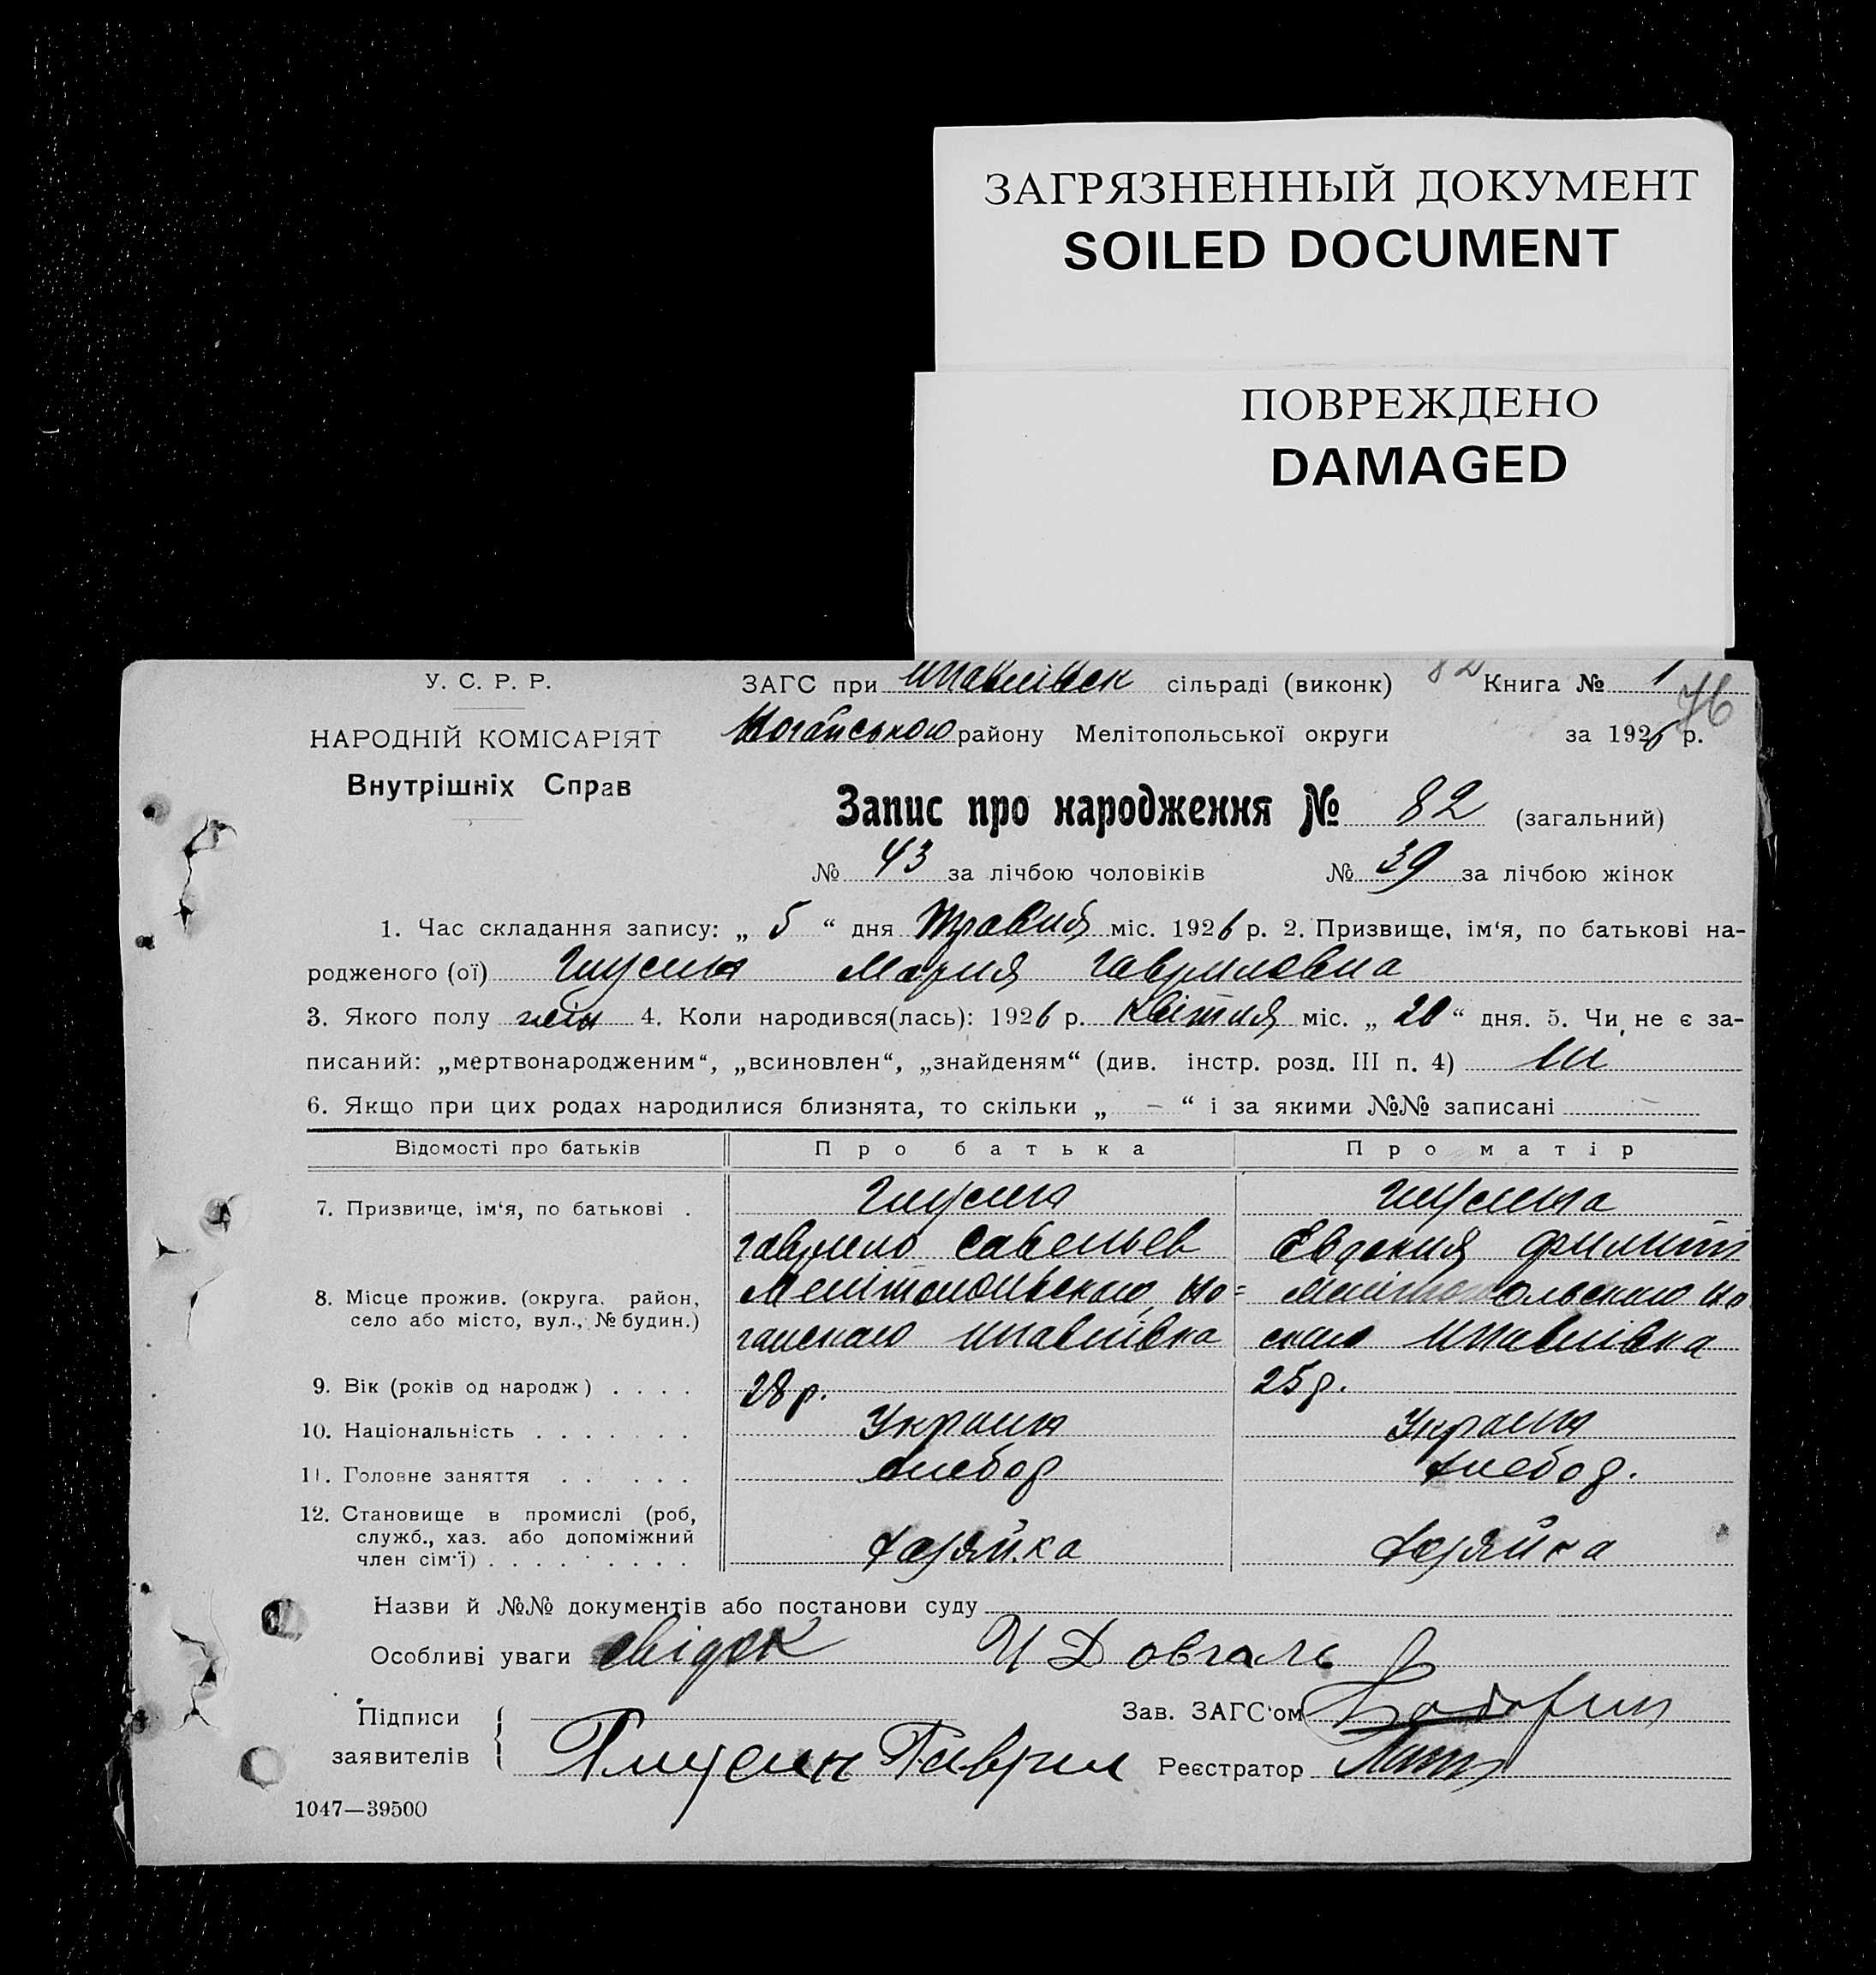 ЗАГРЯЗНЕННЫЙ ДОКУМЕНТ
SOILED DOCUMENT
ПОВРЕЖДЕНО
DAMAGED
У. С. Р. Р.
НАРОДНІЙ КОМІСАРІЯТ
Внутрішніх Справ
ЗАГС при сільраді (виконк) 82 Книга № 1
76
Ногайського району Мелітопольської округи за 1926 р.
Запис про народження № 82 (загальний)
№ 43 за лічбою чоловіків № 39 за лічбою жінок
1. Час складання запису: „ 5 “ дня Травня міс. 1926 р. 2. Призвище, ім‘я, по батькові на-
родженого (ої) Глусин Мария Гавриловна
3. Якого полу 4. Коли народився(лась): 1926 р. Квітня міс. „ 20 “ дня. 5. Чи не є за-
писаний: „мертвонародженим“, „всиновлен“, „знайденям“ (див. інстр. розд. III п. 4) ні
6. Якщо при цих родах народилися близнята, то скільки „ – “ і за якими №№ записані –
Відомості про батьків Про батька Про матір
7. Призвище, ім‘я, по батькові . Глусин Глусина
гаврило Савельев Евдокия Филип
8. Місце прожив. (округа. район, село або місто, вул., № будин.) Мелітопольского но= Мелітопольского но
гайского скаго
9. Вік (років од народж) . . . . 28 р. 25 р.
10. Національність . . . . . . . Україн Україн
11. Головне заняття . . . . . . хлебор хлебор.
12. Становище в промислі (роб,
служб., хаз. або допоміжний
член сім‘ї) . . . . . . . . . хазяйка хазяйка
Назви й №№ документів або постанови суду
Особливі уваги свідок И Довгаль
Підписи
заявителів
Глусин Гаврил
Зав. ЗАГС‘ом
Реєстратор
1047—39500